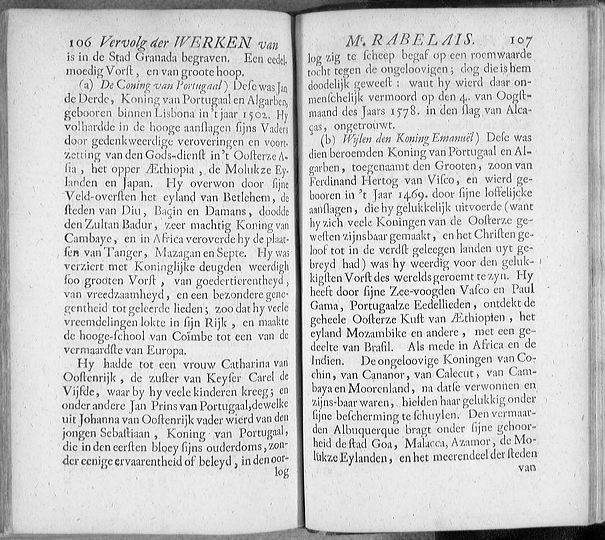 106 Vervolg der WERKEN van
is in de Stad Granada begraven. Een eedel-
moedig Vorst, en van groote hoop.
(a) De Coning van Portugaal) Dese was Jan
de Derde, Koning van Portugaal en Algarben,
gebooren binnen Lisbona in 't jaar 1502. Hy
volhardde in de hooge aanslagen sijns Vaders
door gedenkweerdige veroveringen en voort-
zetting van den Gods-dienst in 't Oosterze A-
sia, het opper Æthiopia, de Molukze Ey-
landen en Japan. Hy overwon door sijne
Veld-oversten het eyland van Betlehem, de
steden van Diu, Baçin en Damans, doodde
den Zultan Badur, zeer machtig Koning van
Cambaye, en in Africa veroverde hy de plaat-
sen van Tanger, Mazagan en Septe. Hy was
verziert met Koninglijke deugden weerdigh
soo grooten Vorst, van goedertierentheyd,
van vreedzaamheyd, en een bezondere gene-
gentheid tot geleerde lieden; zoo dat hy veele
vreemdelingen lokte in sijn Rijk, en maakte
de hooge-school van Coïmbe tot een van de
vermaardste van Europa.
Hy hadde tot een vrouw Catharina van
Oostenrijk, de zuster van Keyser Carel de
Vijfde, waar by hy veele kinderen kreeg; en
onder andere Jan Prins van Portugaal, dewelke
uit Johanna van Oostenrijk vader wierd van den
jongen Sebastiaan, Koning van Portugaal,
die in den eersten bloey sijns ouderdoms, zon-
der eenige ervaarentheid of beleyd, in den oor-
log
Mr. RABELAIS. 107
log zig te scheep begaf op een roemwaarde
tocht tegen de ongeloovigen; dog die is hem
doodelijk geweest: want hy wierd daar on-
menschelijk vermoord op den 4. van Oogst-
maand des Jaars 1578. in den slag van Alca-
ças, ongetrouwt.
(b) Wijlen den Koning Emanuël) Dese was
dien beroemden Koning van Portugaal en Al-
garben, toegenaamt den Grooten, zoon van
Ferdinand Hertog van Visco, en wierd ge-
booren in 't Jaar 1469. door sijne loffelijcke
aanslagen, die hy gelukkelijk uitvoerde (want
hy zich veele Koningen van de Oosterze ge-
westen zijnsbaar gemaakt, en het Christen ge-
loof tot in de verdst geleegen landen uyt ge-
breyd had) was hy weerdig voor den geluk-
kigsten Vorst des werelds geroemt te zyn. Hy
heeft door sijne Zee-voogden Vasco en Paul
Gama, Portugaalze Eedellieden, ontdekt de
geheele Oosterze Kust van Æthiopien, het
eyland Mozambike en andere, met een ge-
deelte van Brasil. Als mede in Africa en de
Indien. De ongeloovige Koningen van Co-
chin, van Cananor, van Calecut, van Cam-
baya en Moorenland, na datse verwonnen en
zijns-baar waren, hielden haar gelukkig onder
sijne bescherming te schuylen. Den vermaar-
den Albuquerque bragt onder sijne gehoor-
heid de stad Goa, Malacca, Azamor, de Mo-
lukze Eylanden, en het meerendeel der steden
van